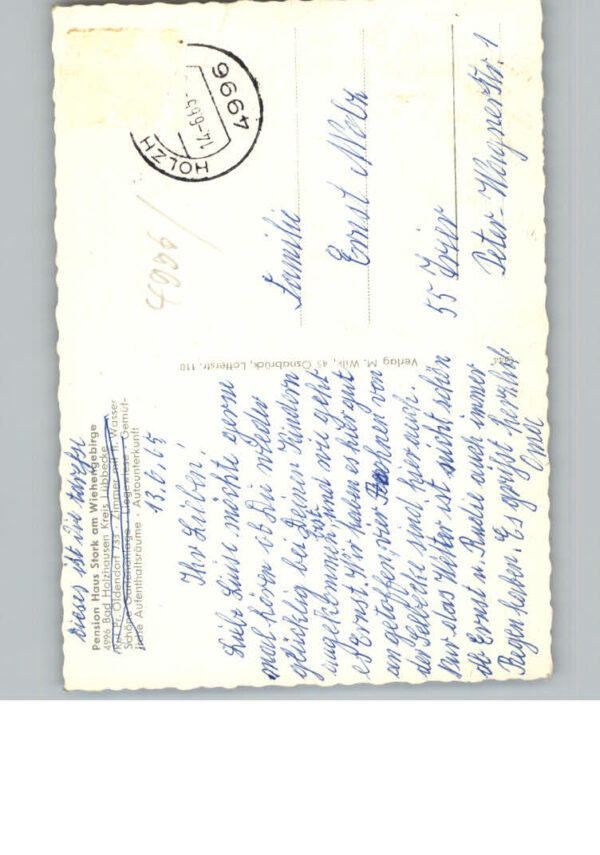 dieses ist die
Pension Haus Stork am Wiehengebirge
4996 Bad Holzhausen Kreis Lübbecke
Ruf Pr. Oldendorf 733 · Zimmer mit fl. Wasser
Schöne Gartenanlage · Liegewiese · Gemüt-
liche Aufenthaltsräume · Autounterkunft
13.6.65
Ihr Lieben!
Liebe Luise möchte gern
mal hören ob Du wieder
glücklig bei Deinen Kindern
angekommen bist und wie geht
es Ernst. Wir haben es hier gut
an getroffen, vier von
der sind hier auch.
Nur das Wetter ist nicht schön
ob Ernst u. auch immer
Regen haben. Es grüßt herzlich
Verlag M. Wilk, 45 Osnabrück, Lotterstr. 110
HOLZH
14.-6.65.-
4996
4996
Familie
Ernst
55 Trier
Peter-Wagner Str. 1